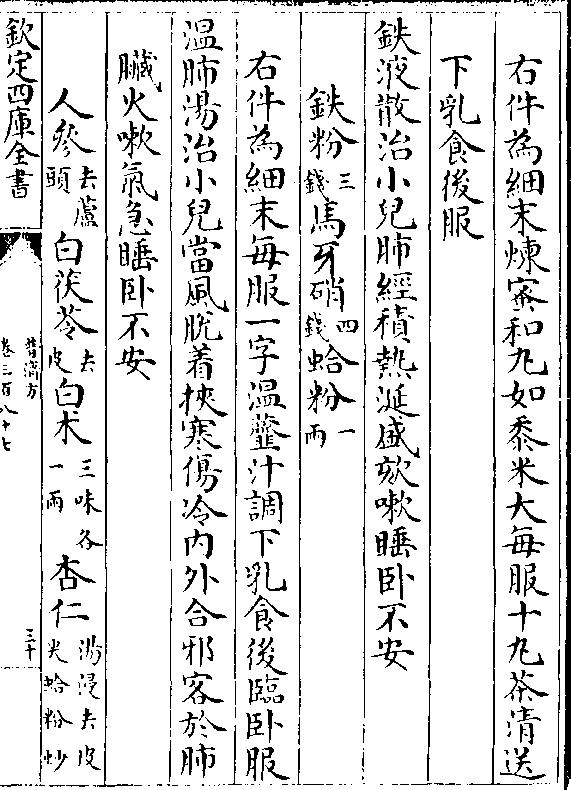 右件為細末煉蜜和丸如黍米大每服十丸茶清送
下乳食後服
鉄液散治小兒肺經積熱涎盛欬嗽睡卧不安
鉄粉三錢馬牙硝四錢蛤粉一兩
右件為細末每服一字温虀汁調下乳食後臨卧服
温肺湯治小兒當風脱着挾寒傷冷内外合邪客於肺
臟火嗽氣急睡卧不安
人參去蘆頭白茯苓去皮白术三味各一兩杏仁湯浸去皮尖蛤粉炒
欽定四庫全書
普濟方
卷三百八十七
三十